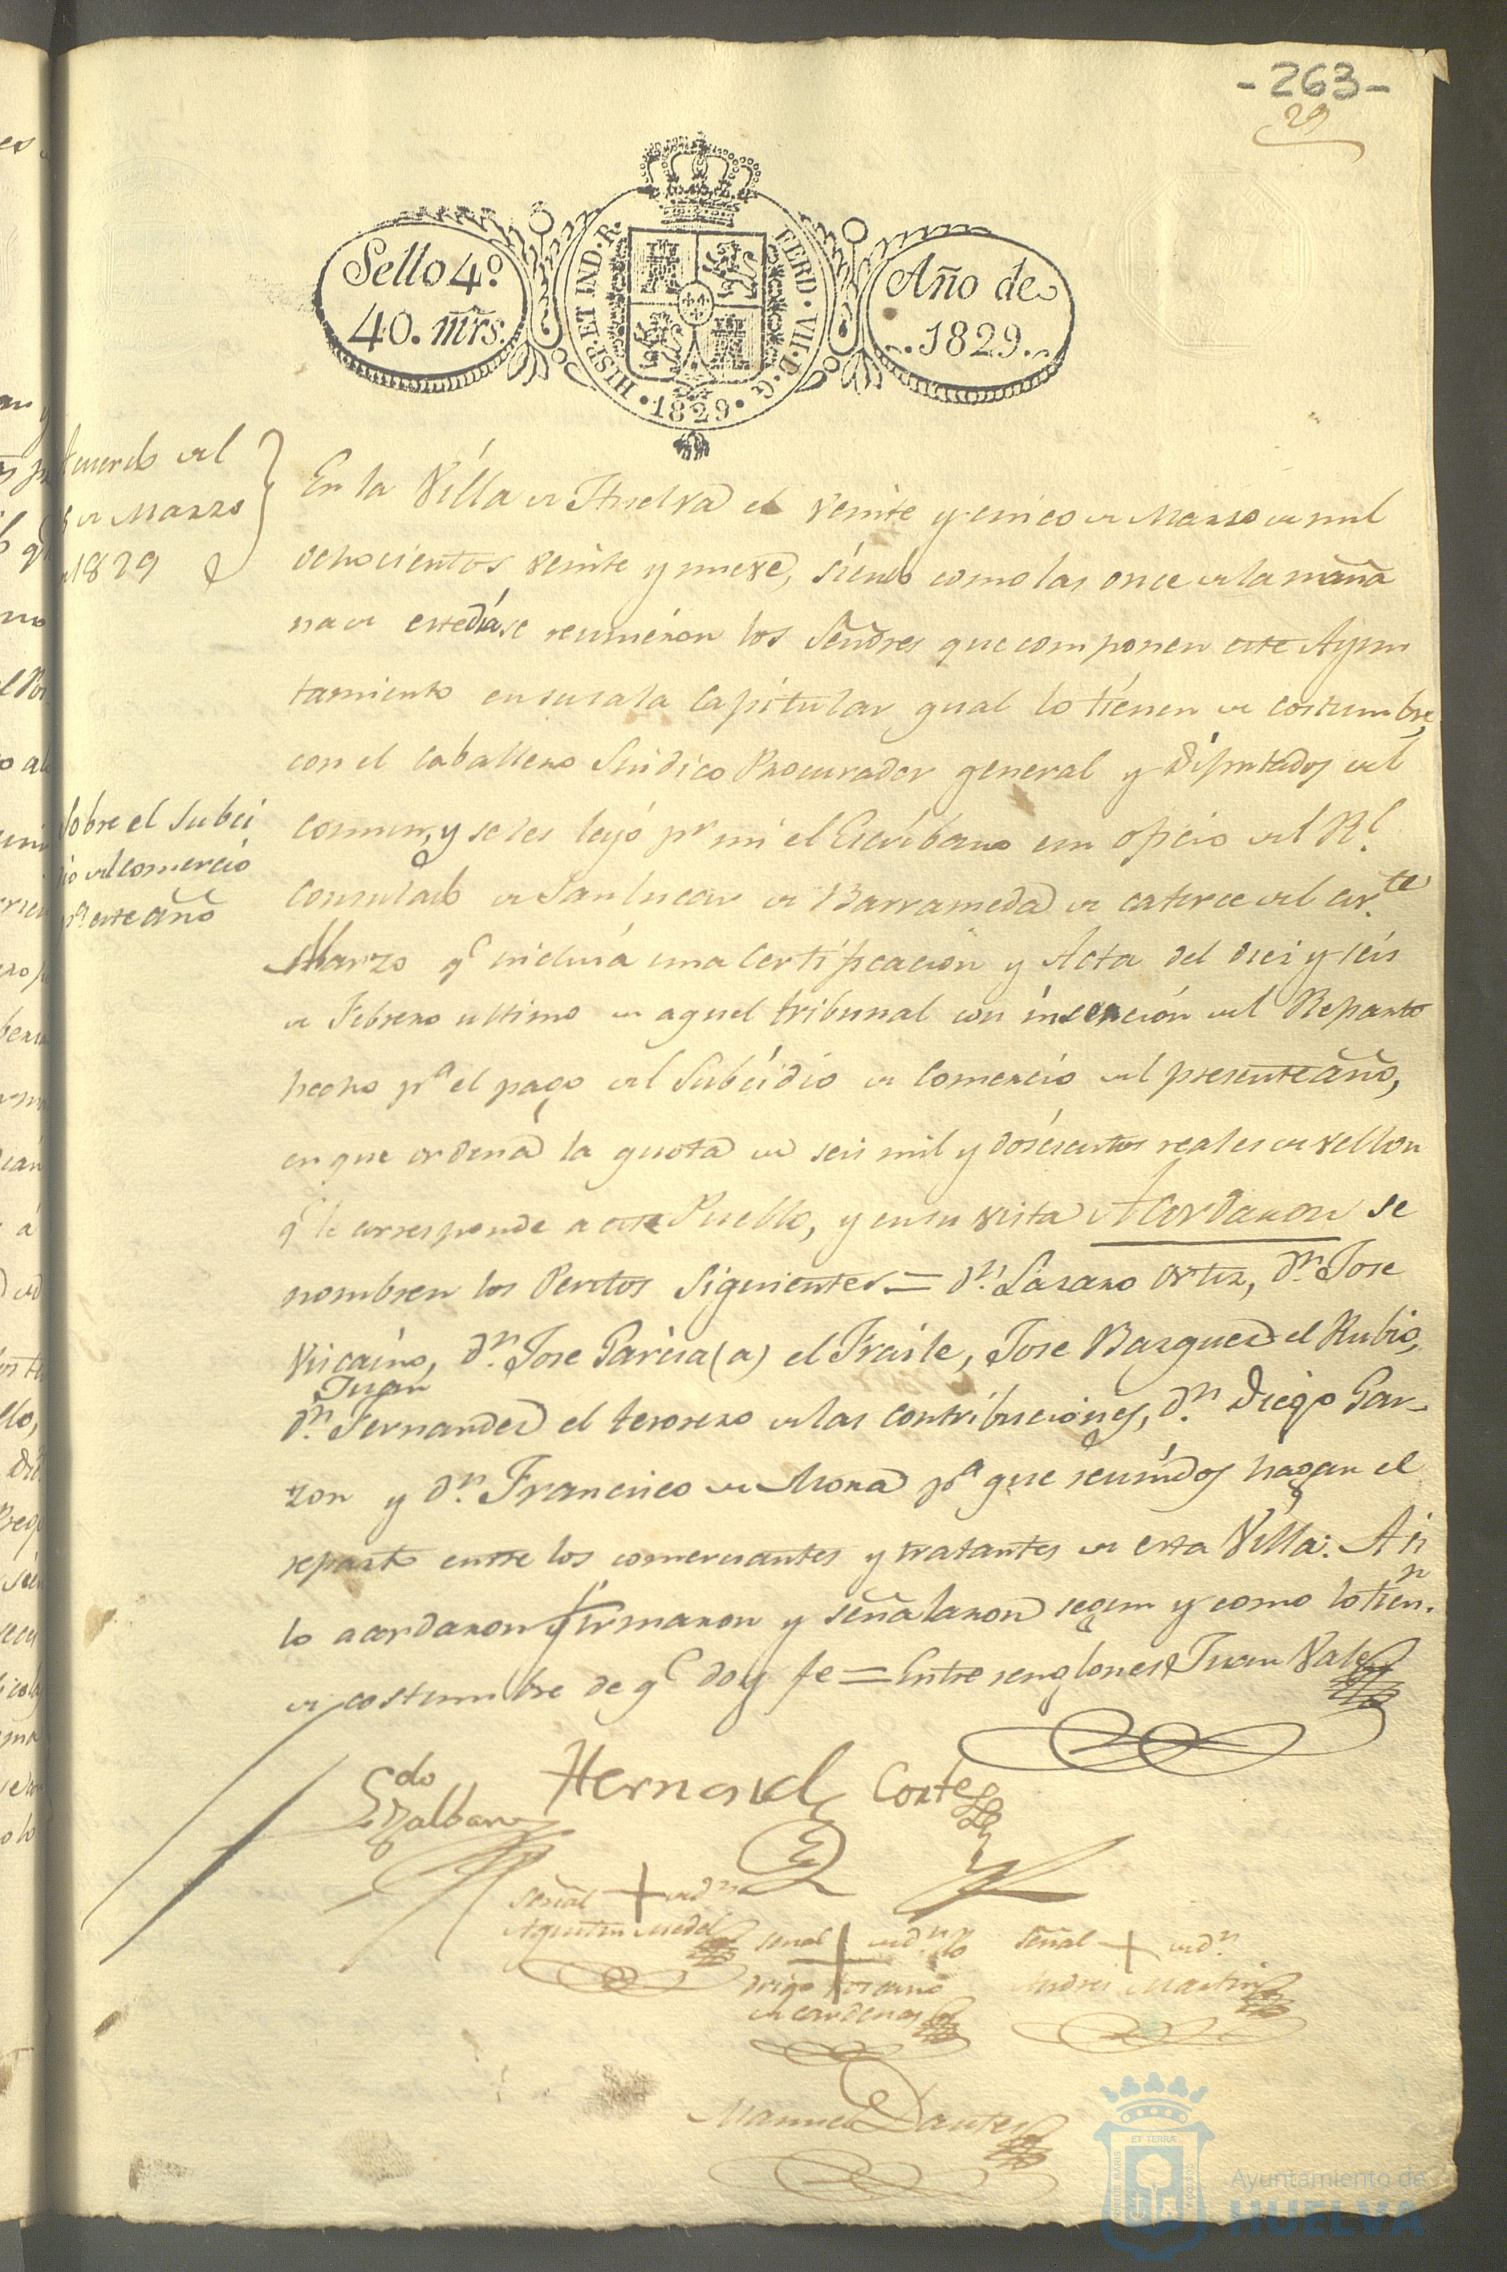 -263-
29
Sello 4º.
40. mrs.
HISP. ET IND. R.
FERD. VII. D. G.
• 1829 •
Año de
.1829.
Acuerdo del
de Marzo
1829
En la Villa de Huelva el veinte y cinco de Marzo de mil
ochocientos veinte y nueve, siendo como las once de la maña
na de este dia se reunieron los Señores que componen este Ayun
tamiento en su sala Capitular qual lo tienen de costumbre,
con el Caballero Sindico Procurador general y Diputados del
Sobre el Subci
dio del comercio
pª este año
comun, y se les leyó pr mi el Escribano un oficio del Rl.
Consulado de Sanlucar de Barrameda de catorce del corte.
Marzo qe incluia una Certificacion y Acta del diez y seis
de Febrero ultimo de aquel tribunal con insercion del Reparto
hecho pª el pago del Subcidio de Comercio del presente año,
en que ordena la quota de seis mil y doscientos reales de vellon
qe le corresponde a este Pueblo, y en su vista Acordaron se
nombren los Peritos Siguientes = Dn. Lazaro Ortiz, Dn. Jose
Viscaino, Dn. Jose Garcia (a) el Fraile, Jose Bazquez el Rubio,
Juan
Dn. Fernandez el tesorero de las contribuciones, Dn. Diego Gar-
zon y Dn. Francisco de Mora pª que reunidos hagan el
reparto entre los comerciantes y tratantes de esta Villa: Asi
lo acordaron firmaron y señalaron segun y como lo tienn.
de costumbre de qe doy fe = Entre renglones Juan Vale
Hernand Cortes
Señal + de Dn
Agustin Medel
Señal + de Dn
Diego
de Cardenas
Señal + de Dn
Andres Martin
Manuel Dantes
ET TERRAE
Ayuntamiento de
HUELVA